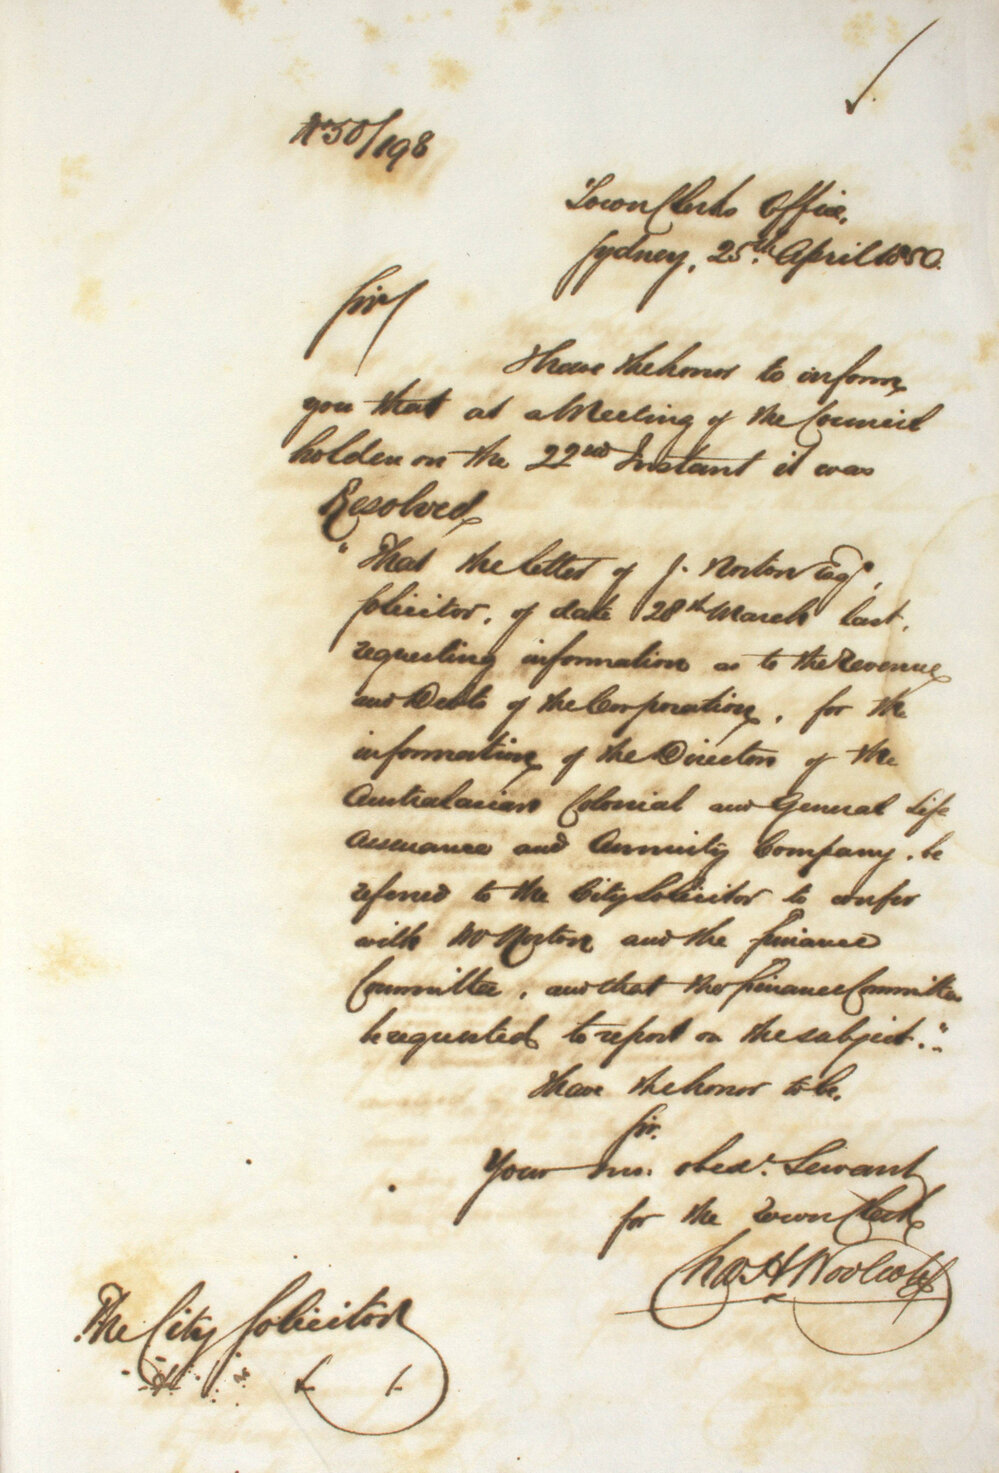 No 50/198
Town Clerks Office,
Sydney, 25th April 1850.
Sir
I have the honor to inform
you that at a Meeting of the Council
holden on the 22nd Instant it was
Resolved
"That the letter of J. Norton Esqr,
Solicitor, of date 28th March last,
requesting information as to the Revenue
and Debts of the Corporation, for the
information of the Directors of the
Australasian Colonial and General Life
Assurance and Annuity Company, be
referred to the City Solicitor to confer
with Mr Norton and the Finance
Committee, and that the Finance Committee
be requested to report on the subject."
I have the honor to be,
Sir,
Your mo. obedt. Servant
for the Town Clerk
Chas H Woolcott
The City Solicitor